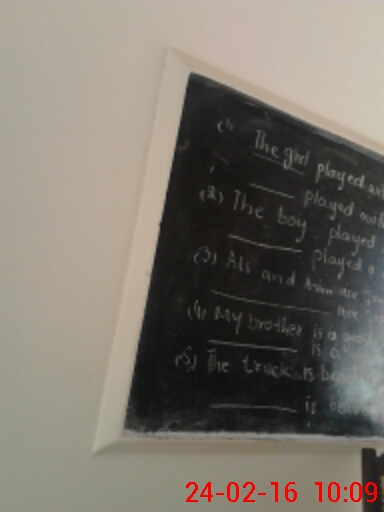 (1) The girl played
____ played
(2) The boy played
____ played a
(3) Ali and are
____ are
(4) My brother is a good
____ is a
(5) The truck is
____ is
24-02-16 10:09